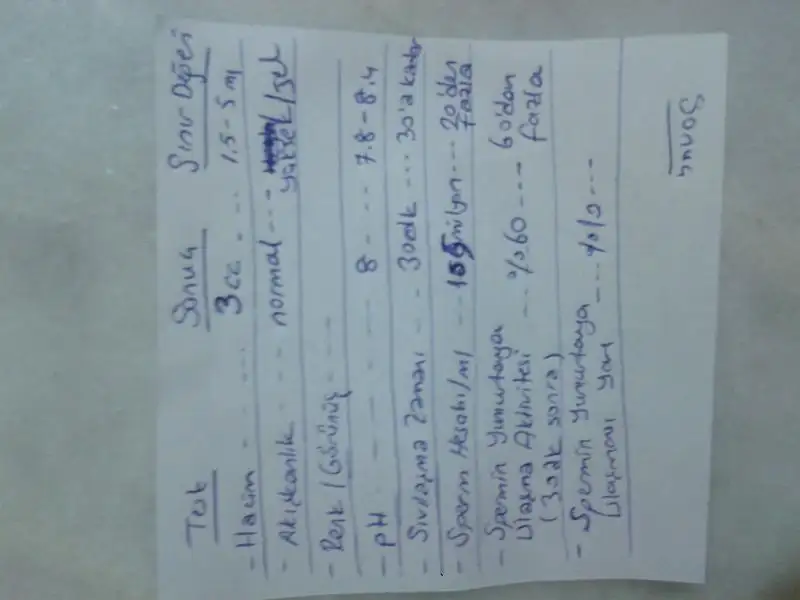 Tet Sonuç Sınır Değeri
- Hacim - - - - - 3 cc - - - 1.5 - 5 ml
- Akışkanlık - - - - normal - - - yüksek/jel
- Renk / Görünüş - - - -
- pH - - - - - - 8 - - - - 7.8 - 8.4
- Sıvılaşma Zamanı - - 30 dk - - - 30'a kadar
- Sperm Hesabı/ml - - - milyon - - - 20'den
fazla
- Spermin Yumurtaya
Ulaşma Aktivitesi - - - %60 - - - 60'dan
(30 dk sonra) fazla
- Spermin Yumurtaya
Ulaşması - - - - - -
Sonuç